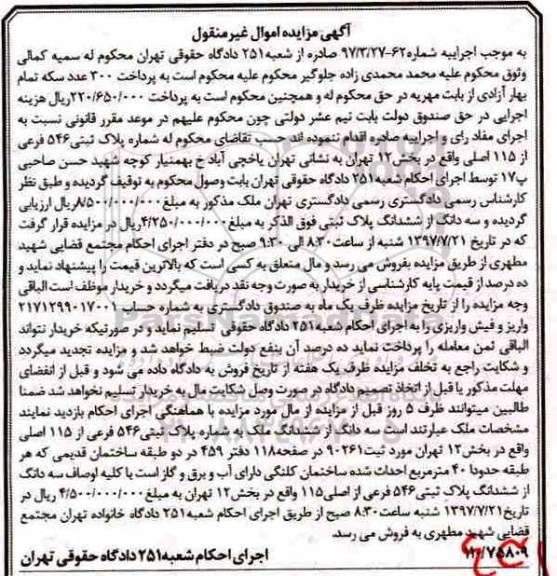 آگهی مزایده اموال غیر منقول
به موجب اجراییه شماره۶۲-۹۷/۳/۲۷ صادره از شعبه۲۵۱ دادگاه حقوقی تهران محکوم له سمیه کمالی
وثوق محکوم علیه محمد محمدی زاده جلوگیر محکوم علیه محکوم است به پرداخت ۳۰۰ عدد سکه تمام
بهار آزادی از بابت مهریه در حق محکوم له و همچنین محکوم است به پرداخت ۲۲۰/۶۵۰/۰۰۰ریال هزینه
اجرایی در حق صندوق دولت بابت نیم عشر دولتی چون محکوم علیهم در موعد مقرر قانونی نسبت به
اجرای مفاد رای و اجراییه صادره اقدام ننموده اند حسب تقاضای محکوم له شماره پلاک ثبتی۵۴۶ فرعی
از ۱۱۵ اصلی واقع در بخش۱۲ تهران به نشانی تهران یاخچی آباد خ بهمنیار کوچه شهید حسن صاحبی
پ۱۷ توسط اجرای احکام شعبه۲۵۱ دادگاه حقوقی تهران بابت وصول محکوم به توقیف گردیده و طبق نظر
کارشناس رسمی دادگستری رسمی دادگستری تهران ملک مذکور به مبلغ۸/۵۰۰/۰۰۰/۰۰۰ریال ارزیابی
گردیده و سه دانگ از ششدانگ پلاک ثبتی فوق الذکر به مبلغ۴/۲۵۰/۰۰۰/۰۰۰ریال در مزایده قرار گرفت
که در تاریخ ۱۳۹۷/۷/۲۱ شنبه از ساعت۸:۳۰ الی ۹:۳۰ صبح در دفتر اجرای احکام مجتمع قضایی شهید
مطهری از طریق مزایده بفروش می رسد و مال متعلق به کسی است که بالاترین قیمت را پیشنهاد نماید و
ده درصد از قیمت پایه کارشناسی از خریدار به صورت وجه نقد دریافت میگردد و خریدار موظف است الباقی
وجه مزایده را از تاریخ مزایده ظرف یک ماه به صندوق دادگستری به شماره حساب ۲۱۷۱۲۹۹۰۱۷۰۰۱
واریز و فیش واریزی را به اجرای احکام شعبه۲۵۱ دادگاه حقوقی تسلیم نماید و در صورتیکه خریدار نتواند
الباقی ثمن معامله را پرداخت نماید ده درصد آن بنفع دولت ضبط خواهد شد و مزایده تجدید میگردد
و شکایت راجع به تخلف مزایده ظرف یک هفته از تاریخ فروش به دادگاه داده می شود و قبل از انقضای
مهلت مذکور یا قبل از اتخاذ تصمیم دادگاه در صورت وصل شکایت مال به خریدار تسلیم نخواهد شد ضمنا
طالبین میتوانند ظرف ۵ روز قبل از مزایده از مال مورد مزایده با هماهنگی اجرای احکام بازدید نمایند
مشخصات ملک عبارتند است سه دانگ از ششدانگ ملک به شماره پلاک ثبتی۵۴۶ فرعی از ۱۱۵ اصلی
واقع در بخش۱۲ تهران مورد ثبت۹۰۲۶۱ در صفحه۱۱۸ دفتر ۴۵۹ در دو طبقه ساختمان قدیمی که هر
طبقه حدودا ۴۰ مترمربع احداث شده ساختمان کلنگی دارای آب و برق و گاز است با کلیه اوصاف سه دانگ
از ششدانگ پلاک ثبتی۵۴۶ فرعی از اصلی۱۱۵ واقع در بخش۱۲ تهران به مبلغ ۴/۵۰۰/۰۰۰/۰۰۰ ریال در
تاریخ۱۳۹۷/۷/۲۱ شنبه ساعت۸:۳۰ صبح از طریق اجرای احکام شعبه۲۵۱ دادگاه خانواده تهران مجتمع
قضایی شهید مطهری به فروش می رسد.
اجرای احکام شعبه۲۵۱ دادگاه حقوقی تهران